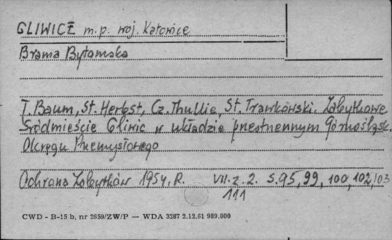 GLIWICE m.p. woj. Katowice
Brama Bytomska
T. Baum, St. Herbst, Cz. Thullie, St. Trawkowski. Zabytkowe
Śródmieście Gliwic w układzie przestrzennym Górnośląsk.
Okręgu Przemysłowego
Ochrona Zabytków 1954, R. VII. z. 2. S. 95, 99, 100, 102, 103
111
CWD - B-15 b, nr 2859/ZW/P — WDA 3287 2.12.61 989.000